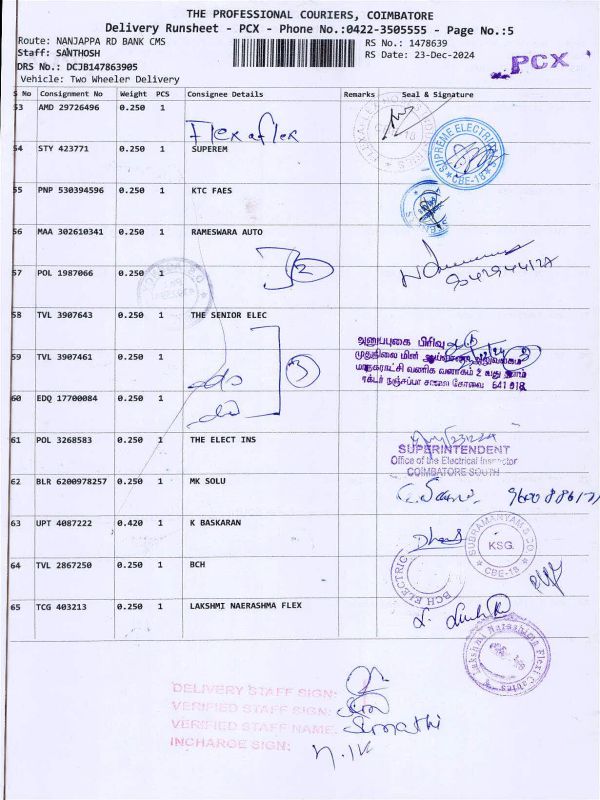 THE PROFESSIONAL COURIERS, COIMBATORE
Delivery Runsheet - PCX - Phone No.:0422-3505555 - Page No.:5
Route: NANJAPPA RD BANK CMS
RS No.: 1478639
Staff: SANTHOSH
RS Date: 23-Dec-2024
PCX
DRS No.: DCJB147863905
Vehicle: Two Wheeler Delivery
S No Consignment No Weight PCS Consignee Details Remarks Seal & Signature
53 AMD 29726496 0.250 1
Flex a flex
54 STY 423771 0.250 1 SUPEREM
SUPREME ELECTRICALS
CBE-18
55 PNP 530394596 0.250 1 KTC FAES
56 MAA 302610341 0.250 1 RAMESWARA AUTO
57 POL 1987066 0.250 1
2
58 TVL 3907643 0.250 1 THE SENIOR ELEC
அனுப்புகை பிரிவு
59 TVL 3907461 0.250 1
3
முதுநிலை மின் ஆய்வாளர் அலுவலகம்
மாநகராட்சி வணிக வளாகம் 2 வது தளம்
டாக்டர் நஞ்சப்பா சாலை கோவை 641 018
do
60 EDQ 17700084 0.250 1
do
61 POL 3268583 0.250 1 THE ELECT INS
23/12/24
SUPERINTENDENT
Office of the Electrical Inspector
COIMBATORE SOUTH
62 BLR 6200978257 0.250 1 MK SOLU
63 UPT 4087222 0.420 1 K BASKARAN
SUBRAMANYAM & CO
KSG.
CBE-18
64 TVL 2867250 0.250 1 BCH
BCH ELECTRIC
65 TCG 403213 0.250 1 LAKSHMI NAERASHMA FLEX
Lakshmi Narashima Flexi
DELIVERY STAFF SIGN:
VERIFIED STAFF SIGN:
VERIFIED STAFF NAME: Sumathi
INCHARGE SIGN: